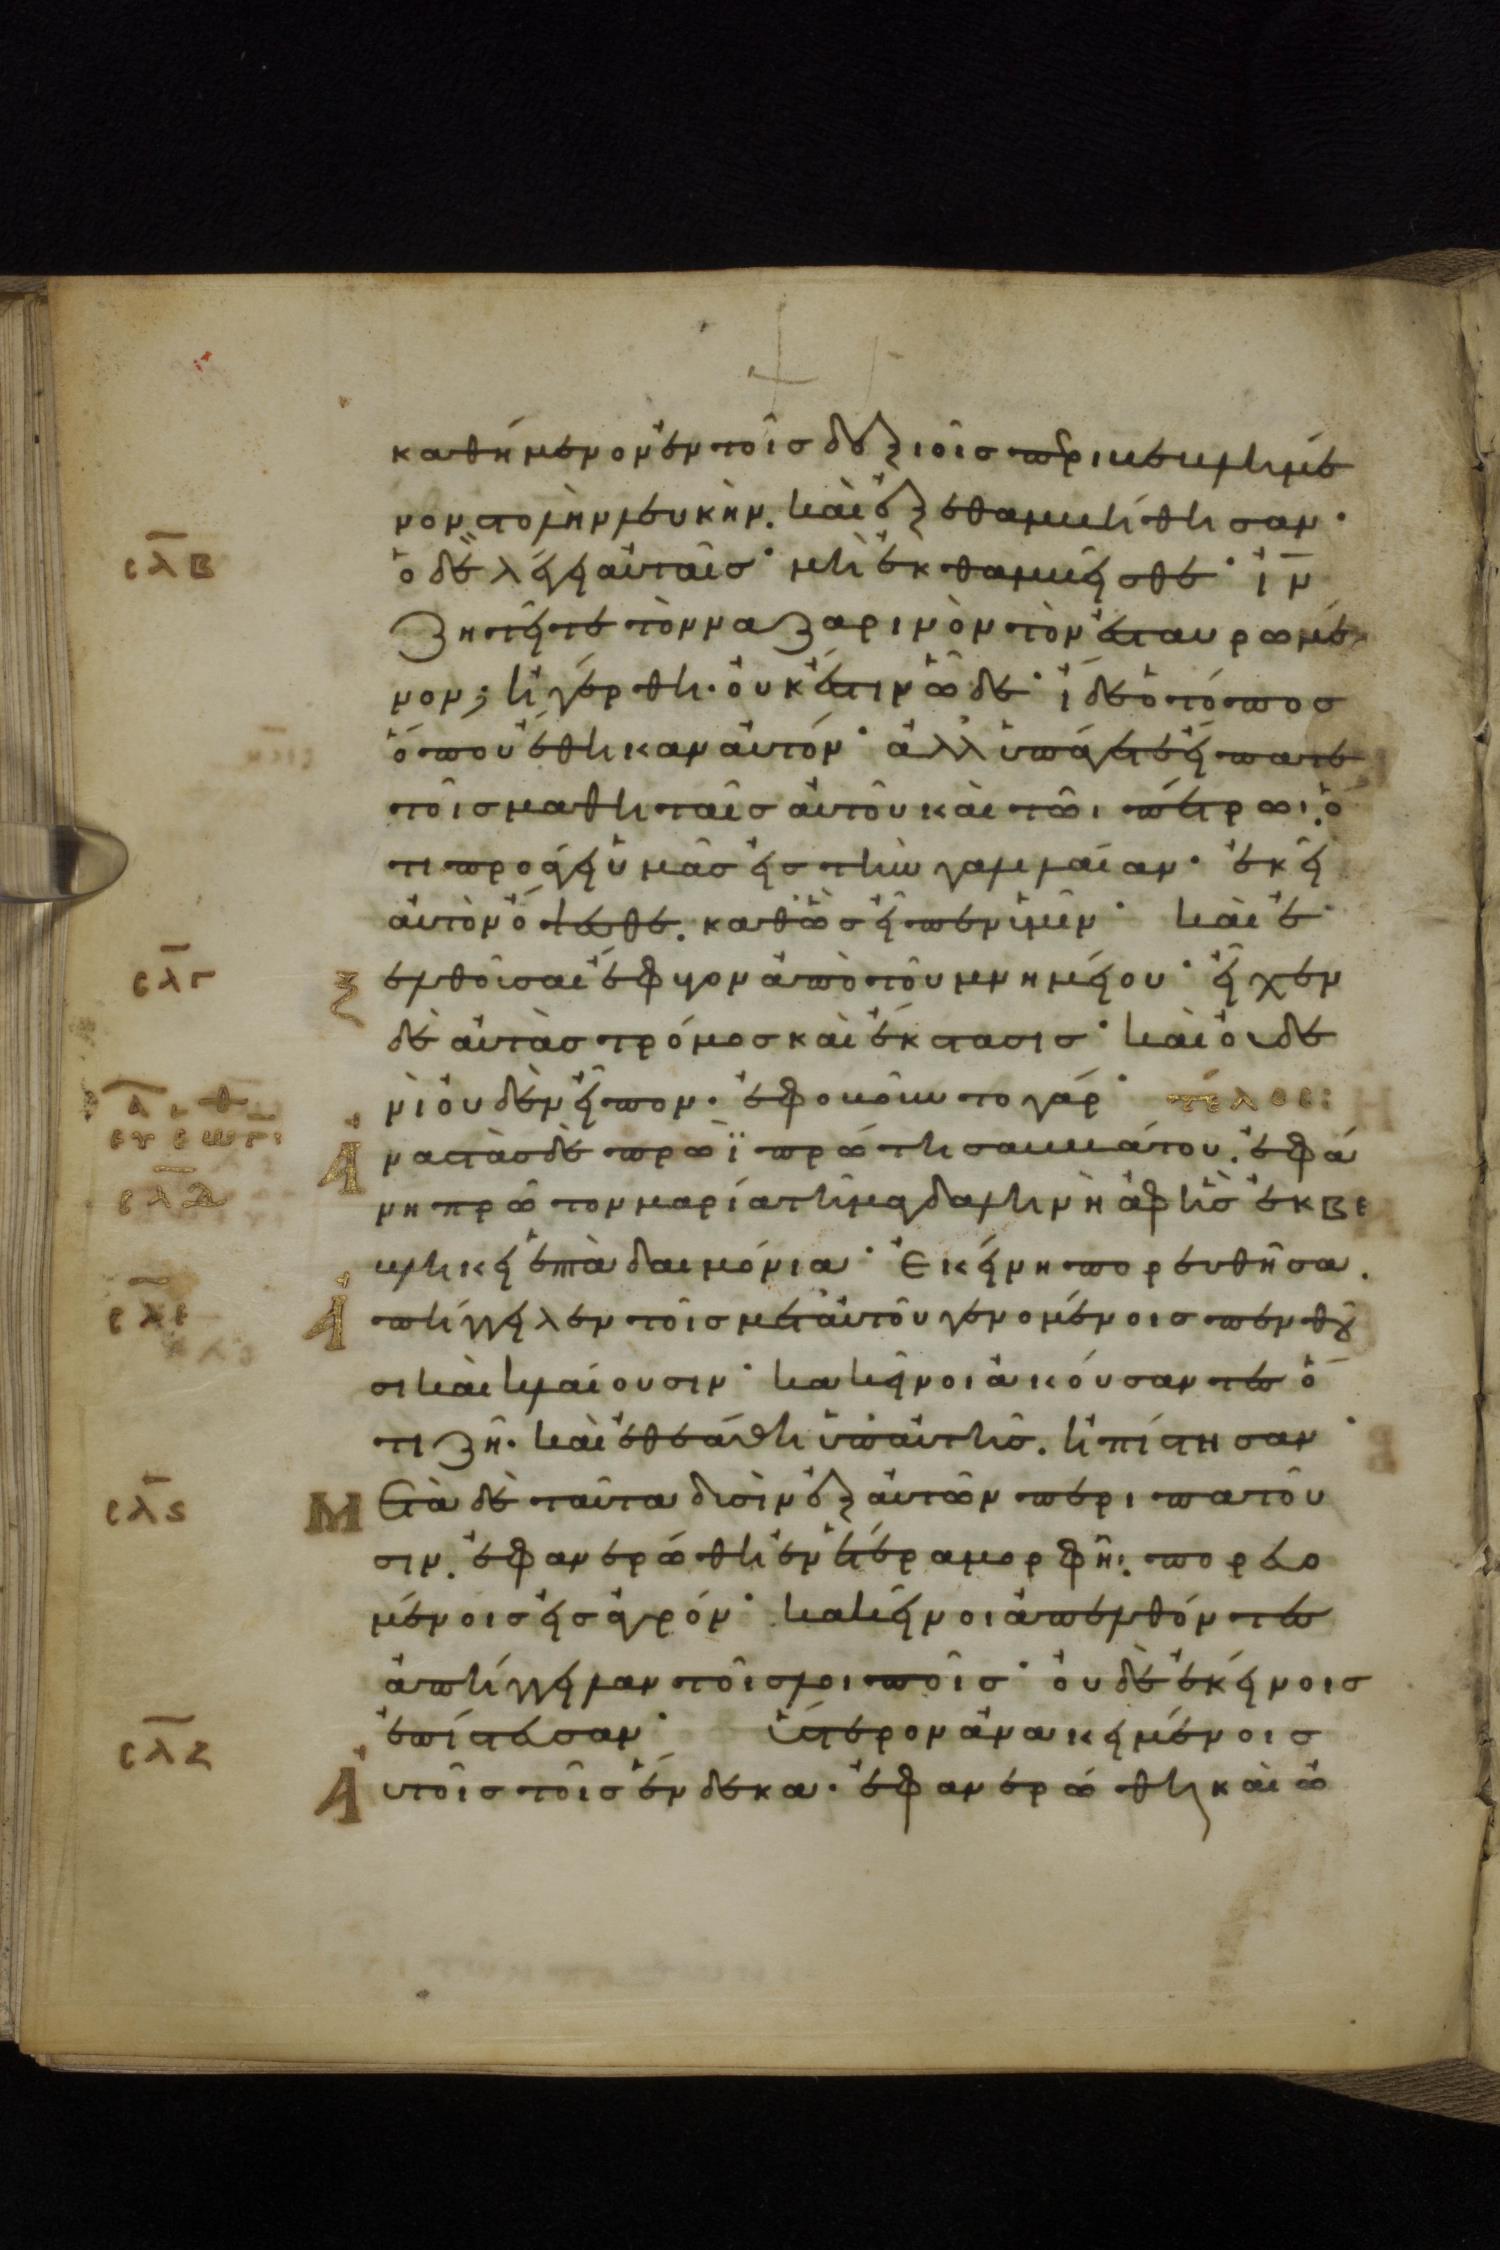 καθήμενον ἐν τοῖσ δεξιοῖσ περιβεβλημέ
νον στολὴν λευκήν. καὶ ἐξεθαμβήθησαν·
σλβ ὁ δὲ λέγει αὐταῖσ· μὴ ἐκθαμβεῖσθε· ἰν
ζητεῖτε τὸν ναζαρινὸν τὸν ἐσταυρωμέ
νον; ἠγέρθη· οὐκ ἔστιν ὧδε· ἴδε ὁ τόποσ
ὅπου ἔθηκαν αὐτόν· ἀλλ' ὑπάγετε εἴπατε
τοῖσ μαθηταῖσ αὐτοῦ καὶ τῶι πέτρωι. ὅ
τι προάγει ὑμᾶσ εἰσ τὴν γαλιλαίαν· ἐκεῖ
αὐτὸν ὄψεσθε. καθὼσ εἶπεν ὑμῖν· καὶ ἐ
σλγ ξελθοῦσαι ἔφυγον ἀπὸ τοῦ μνημείου· εἶχεν
δὲ αὐτὰσ τρόμοσ καὶ ἔκστασισ· καὶ οὐδε
νὶ οὐδὲν εἶπον· ἐφοβοῦντο γάρ· τέλοσ:
Ἀναστὰσ δὲ πρωῒ πρώτη σαββάτου. ἐφά
σλδ νη πρῶτον μαρία τῆ μαγδαληνῆ ἀφ' ἧσ ἐκβε
βλήκει ἑπτὰ δαιμόνια· Ἐκείνη πορευθεῖσα.
σλε ἀπήγγειλεν τοῖσ μετ' αὐτοῦ γενομένοισ πενθοῦ
σι καὶ κλαίουσιν· κακεῖνοι ἀκούσαντεσ ὅ
τι ζῆ· καὶ ἐθεάθη ὑπ' αὐτῆσ. ἠπίστησαν·
σλς Μετὰ δὲ ταῦτα δυσὶν ἐξ αὐτῶν περιπατοῦ
σιν. ἐφανερώθη ἐν ἑτέρα μορφῆ. πορευο
μένοισ εἰσ ἀγρόν· κακεῖνοι ἀπελθόντεσ
ἀπήγγειλαν τοῖσ λοιποῖσ· οὐδὲ ἐκείνοισ
ἐπίστευσαν· ὕστερον ἀνακειμένοισ
σλζ Ἀυτοῖσ τοῖσ ἕνδεκα· ἐφανερώθη καὶ ὠ